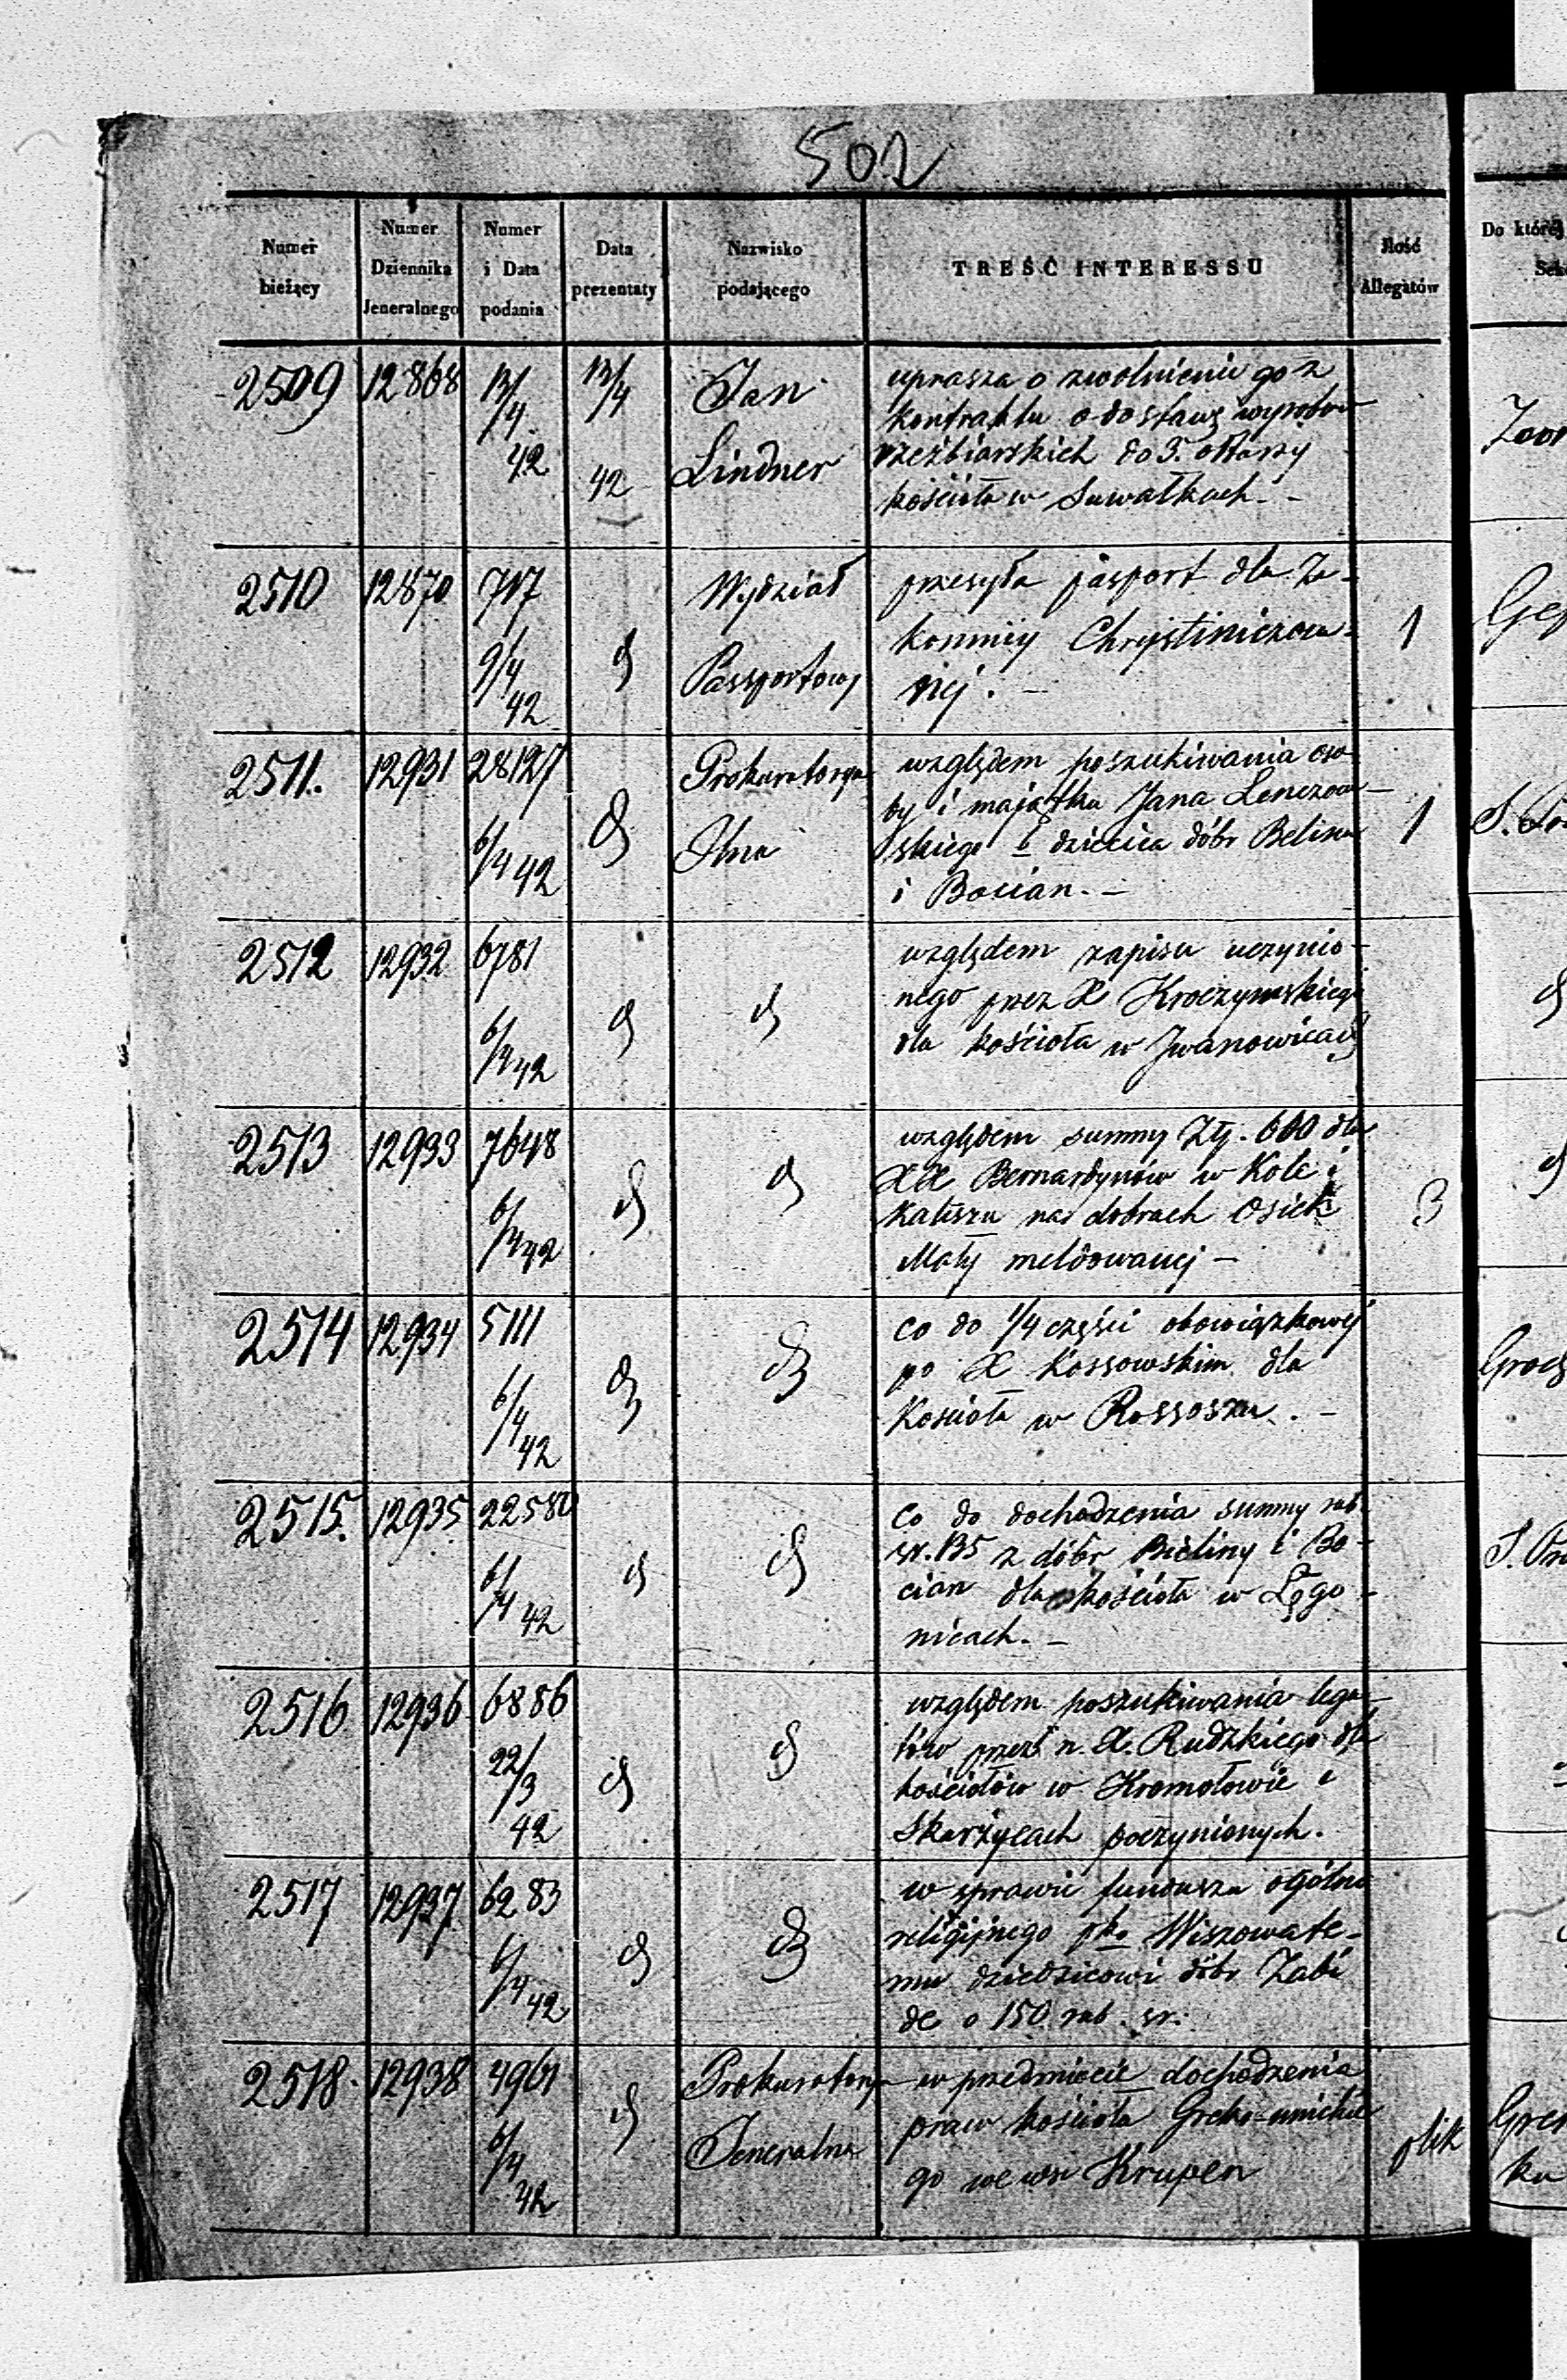 502
Numer bieżący
Numer Dziennika Jeneralnego
Numer i Data podania
Data prezentaty
Nazwisko podającego
TREŚĆ INTERESSU
Ilość Allegatów
Do której
2509 12868 13/4 42 13/4 42 Jan Lindner
uprasza o zwolnienie go z
kontraktu o dostawę wyrobów
rzeźbiarskich do 3. ołtarzy
kościoła w Suwałkach. -
2510 12870 717 9/4 42 Wydział Passportowy
przesyła pasport dla Za-
konnicy Chrystiniczow-
nej. - 1
2511. 12931 28127 6/4 42 Prokuratorya
względem poszukiwania oso-
by i majątku Jana Lenczow-
skiego dziedzica dóbr Belina
i Bocian. - 1
2512 12932 6781 6/4 42
względem zapisu uczynio-
nego przez X
dla kościoła w Iwanowicach
2513 12933 7648 6/4 42
względem summy Złp. 600 dla
XX Bernardynów w Kole i
Kaliszu na dobrach Osiek
Mały meldowanej - 3
2514 12934 5111 6/4 42
co do 1/4 części obowiązkowej
po X Kossowskim dla
Kościoła w Rossoszu. -
2515. 12935 22580 6/4 42
co do dochodzenia summy rub.
sr. 135 z dóbr Bieliny i Bo-
cian dla kościoła w Łęgo-
nicach. -
2516 12936 6886 22/3 42
względem poszukiwania lega-
tów przez n. X. Rudzkiego dla
kościołów w Kromołowie i
Skarżycach poczynionych.
2517 12937 6283 6/4 42
w sprawie funduszu ogólno
religijnego pko Wiszowate-
mu dziedzicowi dóbr Zabi
de o 150 rub. sr.
2518. 12938 4961 6/4 42 Prokuratorya Jeneralna
w przedmiocie dochodzenia
praw kościoła Greko-unickie
go we wsi Krupen plik